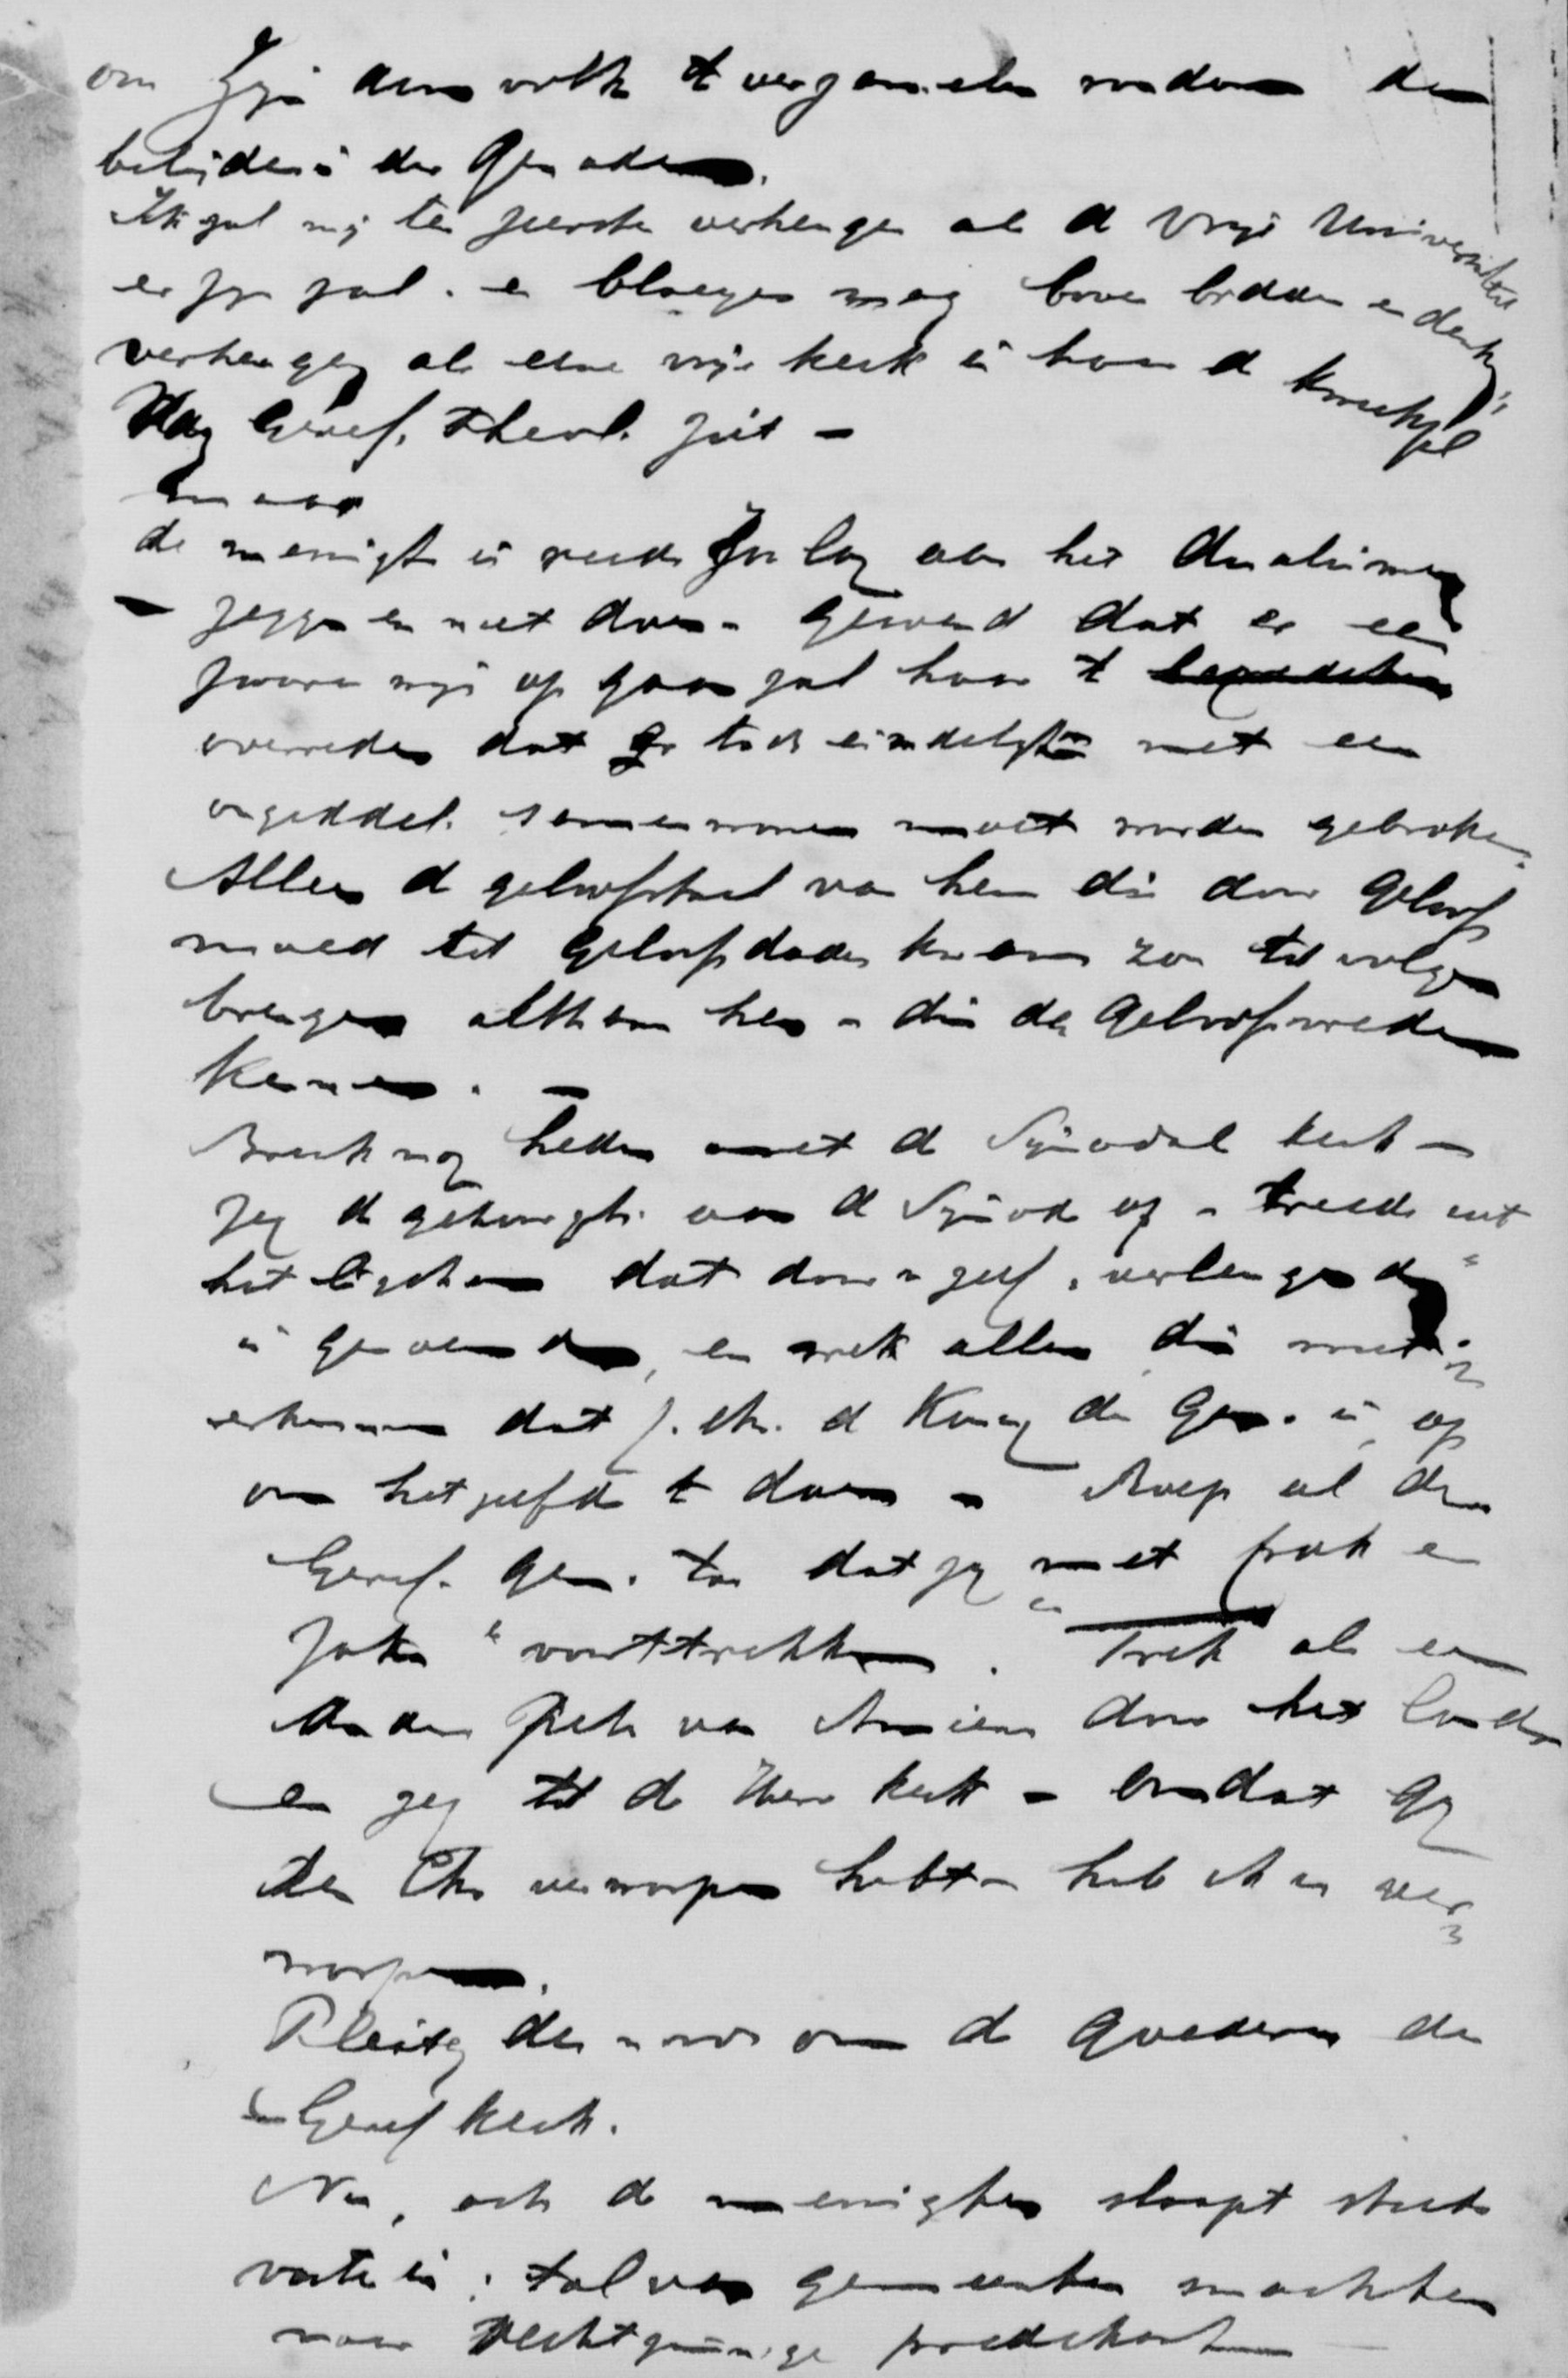 om Zijn arm volk te vergaderen rondom de
belijdenis der Genade.
Ik zal mij ten zeerste verheugen als de Vrije Universiteit
er zijn zal. en bloeyen mag boven bidden en denken
verheugen als eene vrije kerk in haar de kweekschool
Geref. theol. ziet –
maar
de menigte is reeds zoo lang aan het dualisme
– zeggen en niet doen – gewend dat er een
zware wijs op gaan zal haar te
overreden dat er toch eindelijk met een
onzeddel. samenwonen moet worden gebroken.
Alleen de geloofstaal van hen die door geloofs
moed tot geloofsdaden kwam zou tot volgen
brengen althans hen – die de geloofsvrede
kennen. –
Breek nog heden met de Synodale kerk –
zeg de gehoorzh. aan de Synode op – treed uit
het ligchaam dat door u zelf "verlengende"
is genoemd, en wek allen die met u
erkennen dat J. Chr. de Koning der Gem. is, op
om hetzelfde te doen – Roep al de
Geref. gem. toe dat zij met pak en
zak "voorttrekken". Trek als een
ander Peter van Amiens door het land
en zeg tot de Herv kerk – omdat gij
den Chr verworpen hebt – heb ik u ver
worpen.
Pleit dan voor om de goederen der
Geref kerk.
Nu, och de menigte slaapt steeds
vaster in; tal van gemeenten smachten
naar rechtzinnige predikanten –